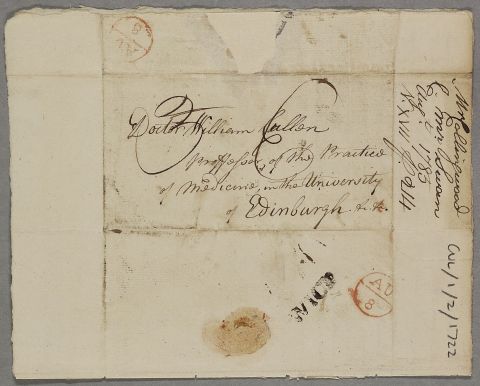 Doctor William Cullen
Professor of the Practice
of Medicine, in the University
of Edinburgh &c.
Mr Collingwood
C. Mrs
Augt 1783
N. XVII P. 214
CUL/1/2/1722
AU
8
AU
8